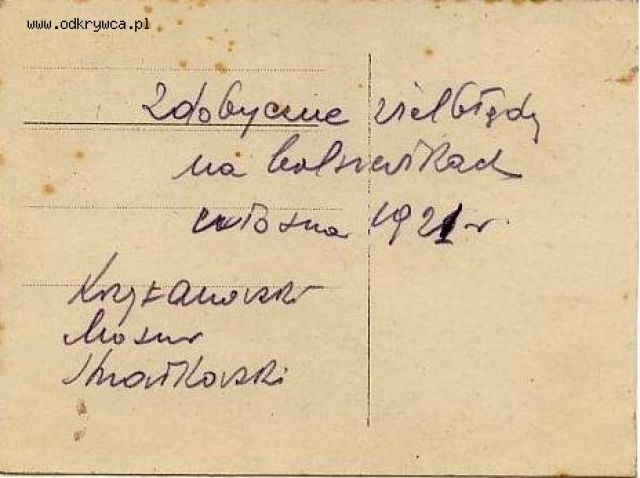 www.odkrywca.pl
zdobyczne wielbłędy
na bolszewikach
wiosna 1921 r.
Krzyżanowski
Mazur